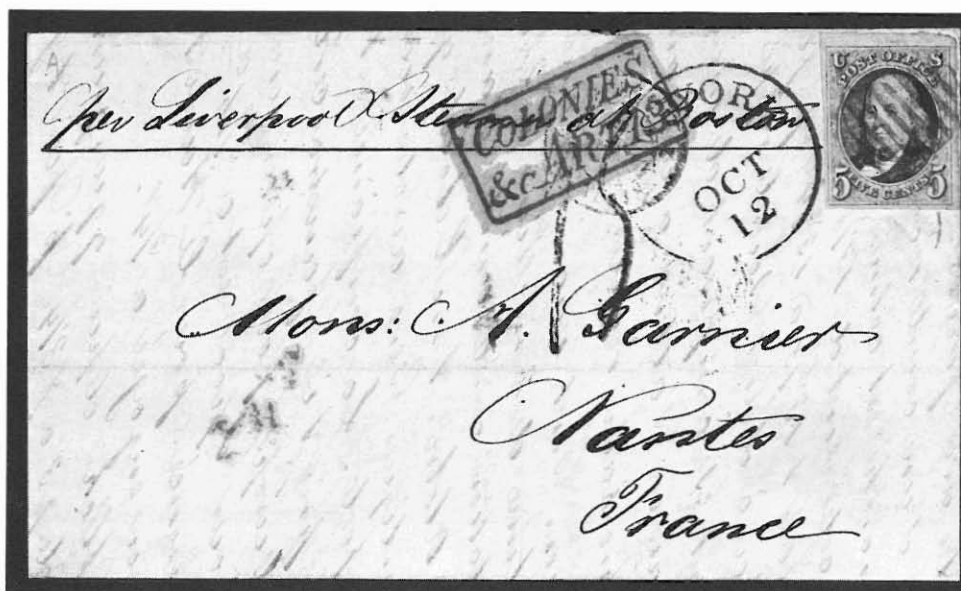 per Liverpool Steamer of Boston
COLONIES
&c. ART.13
YORK
OCT
12
U S
POST OFFICE
FIVE CENTS
5 5
15
Mons: A. Garnier
Nantes
France